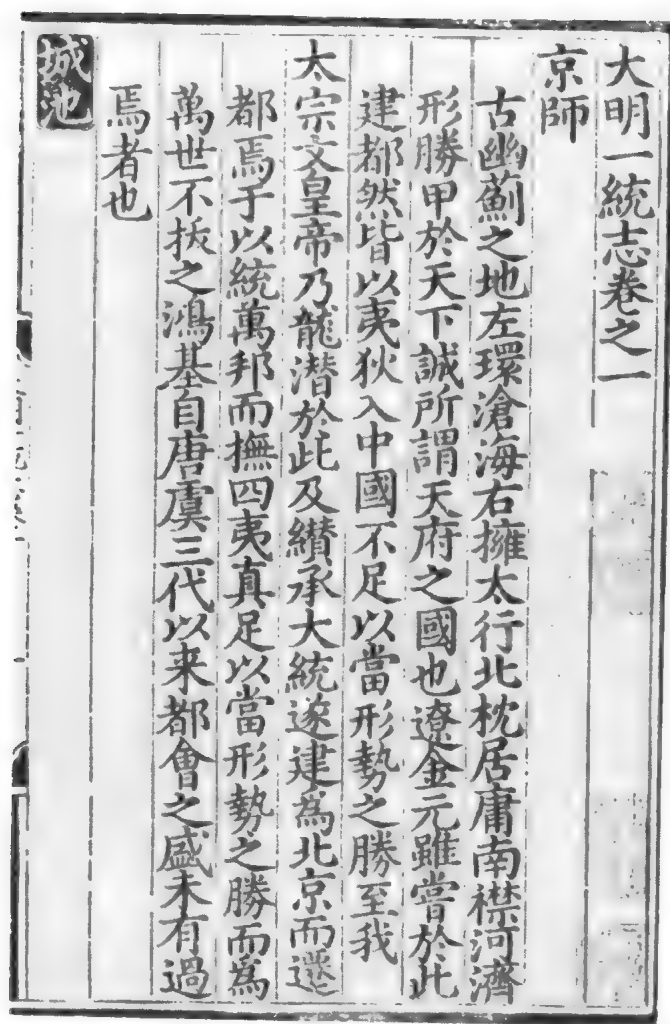 大明一統志卷之一
京師
古幽薊之地左環滄海右擁太行北枕居庸南襟河濟
形勝甲於天下誠所謂天府之國也遼金元雖嘗於此
建都然皆以夷狄入中國不足以當形勢之勝至我
太宗文皇帝乃龍潜於此及纘承大統遂建爲北京而遷
都焉于以統萬邦而撫四夷真足以當形勢之勝而爲
萬世不拔之鴻基自唐虞三代以来都會之盛未有過
焉者也
城池